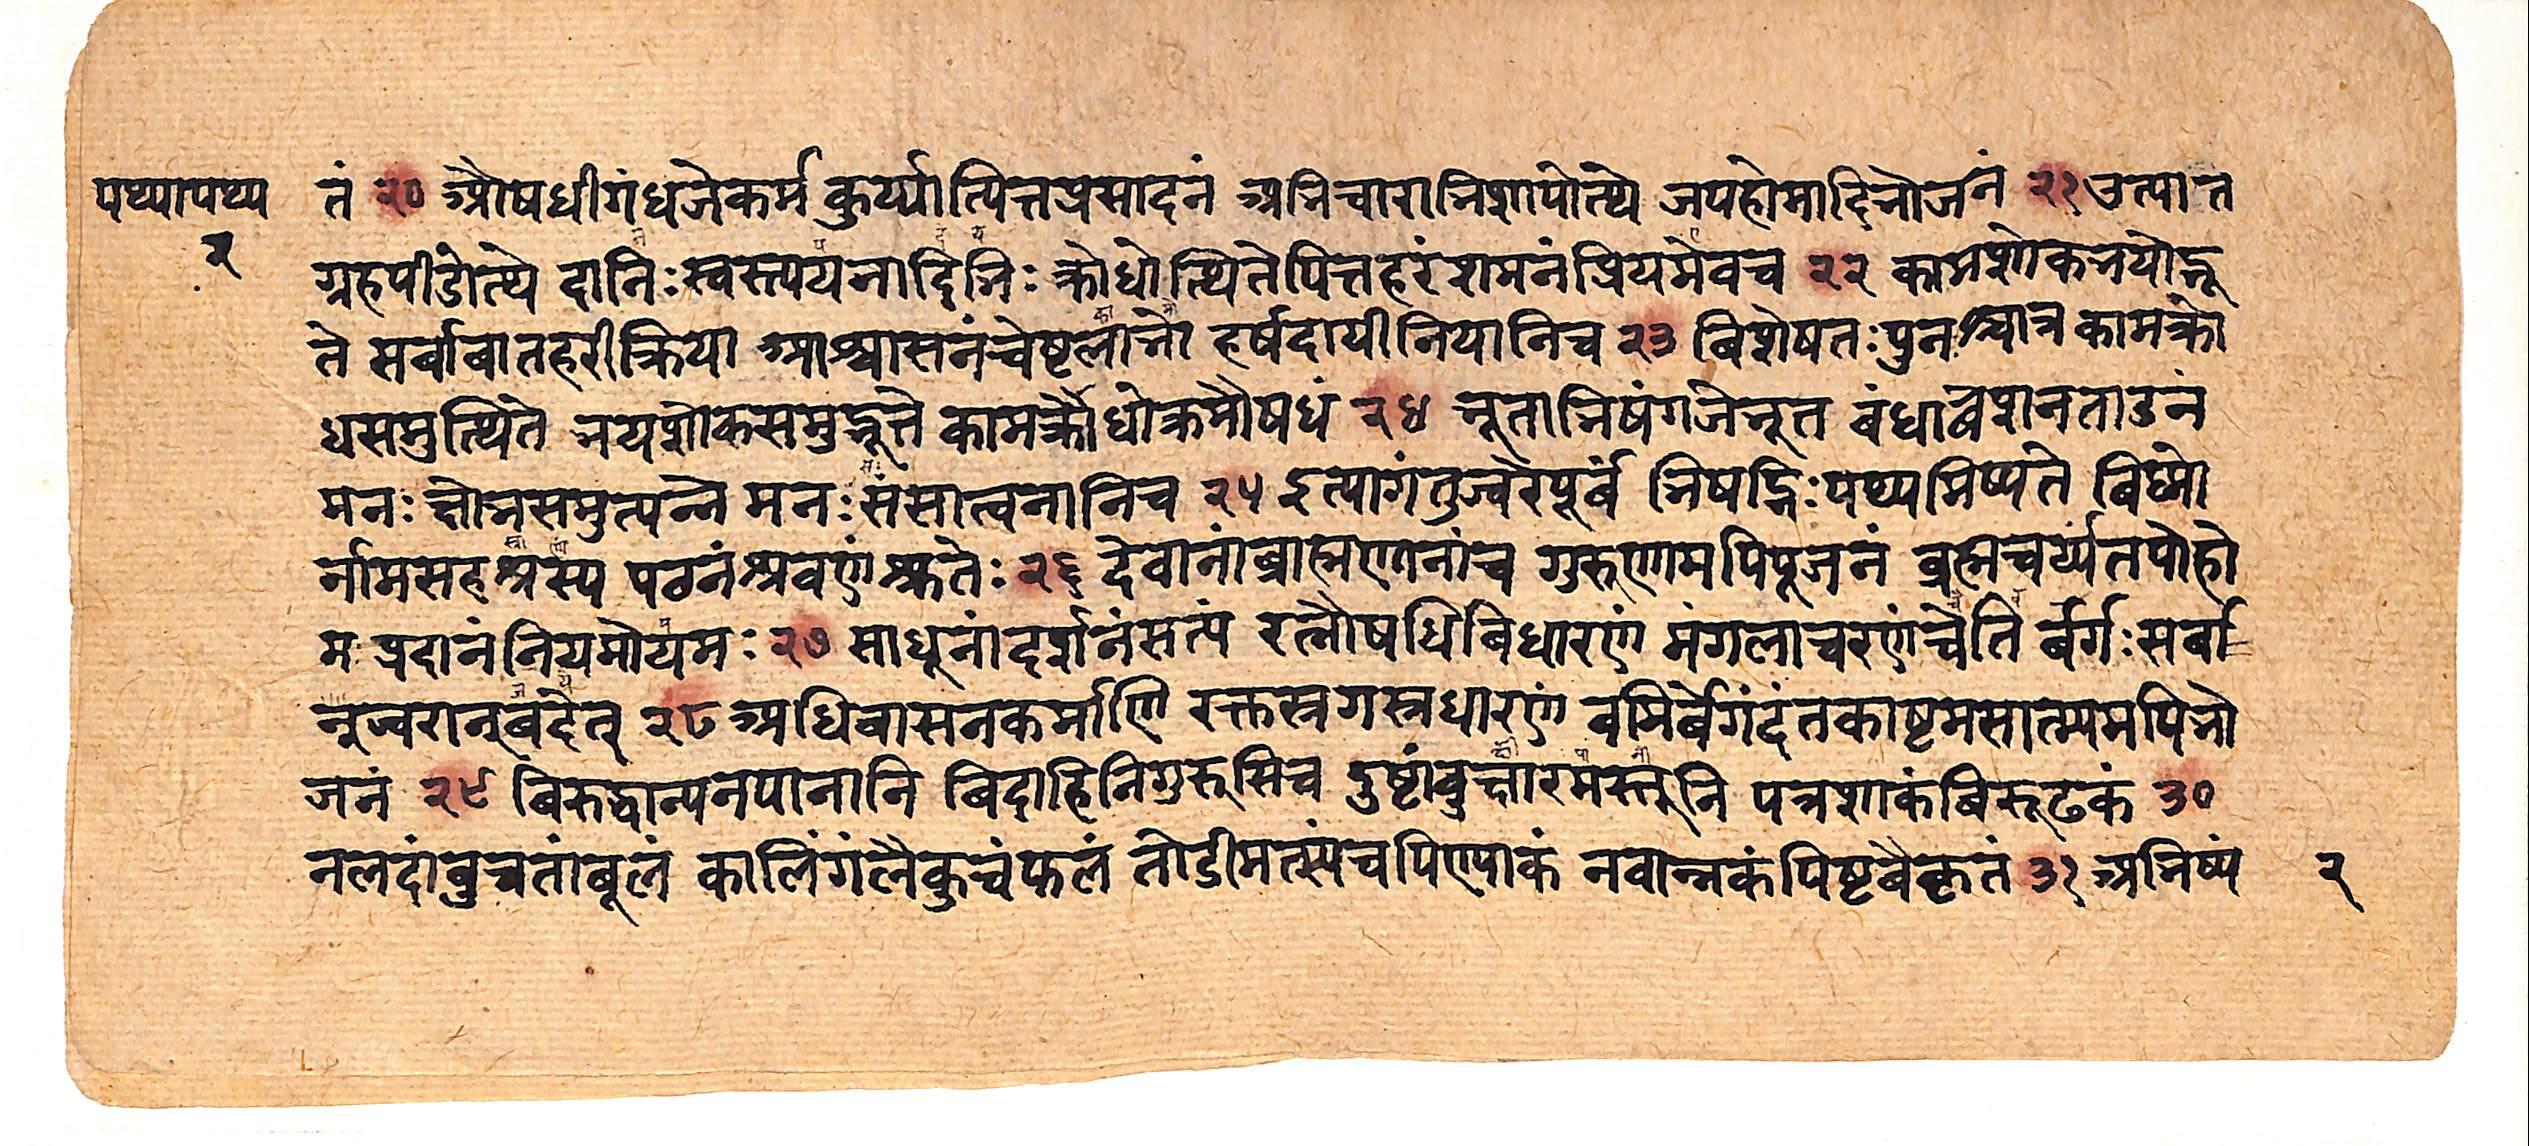 पथ्यापथ्य
२
तं २० औषधीगंधजेकर्म कुर्य्यात्पित्तप्रसादनं अभिचाराभिशापोत्थे जपहोमादिभोजनं २१ उत्पात
ग्रहपीडोत्थे दानिःस्वस्त्ययनादिभिः क्रोधोत्थितेपित्तहरं शमनंप्रियमेवच २२ कामशोकभयोद्भू
ते सर्बाबातहरीक्रिया आश्वासनंचेष्टलाभो हर्षदायीनियानिच २३ बिशेषतःपुनश्चात्र कामक्रो
धसमुत्थिते भयशोकसमुद्भूत्ते कामक्रोधोक्तमौषधं २४ भूताभिषंगजेभूत बंधाबेशनताडनं
मनःक्षोभसमुत्पन्ने मनःसंसात्वनानिच २५ इत्यागंतुज्वरैपूर्बं भिषद्भिःपथ्यमिष्यते बिष्णो
र्नामसहश्रस्य पठनंश्रवणंश्रुतेः २६ देवानांब्राह्मणानांच गुरुणामपिपूजनं ब्रह्मचर्य्यतपोहो
मःप्रदानंनियमोयमः २७ साधूनांदर्शनंसत्यं रत्नौषधिबिधारणं मंगलाचरणंचैति र्बर्गःसर्बा
नुज्वरानुबंदेत् २८ अधिबासनकर्माणि रक्तस्रगस्त्रधारणं बमिर्बेगंदंतकाष्टमसात्म्यमपिभो
जनं २९ बिरुद्धान्यनपानानि बिदाहिनिगुरूसिच दुष्टांबुक्षारमस्तूनि पत्रशाकंबिरूढकं ३०
नलदांबुचतांबूलं कालिंगंलैकुचंफलं तोडीमत्स्यंचपिण्याकं नवान्नकंपिष्टबैकृतं ३१ अभिष्यं
२